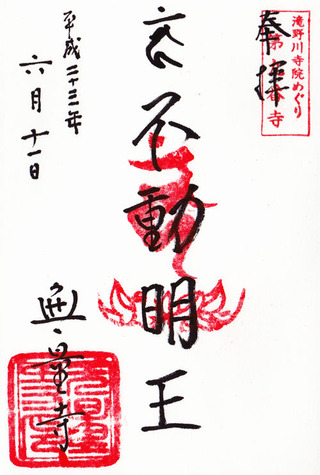 奉拝
滝野川寺院めぐり
不動明王
平成二十三年
六月十一日
無量寺